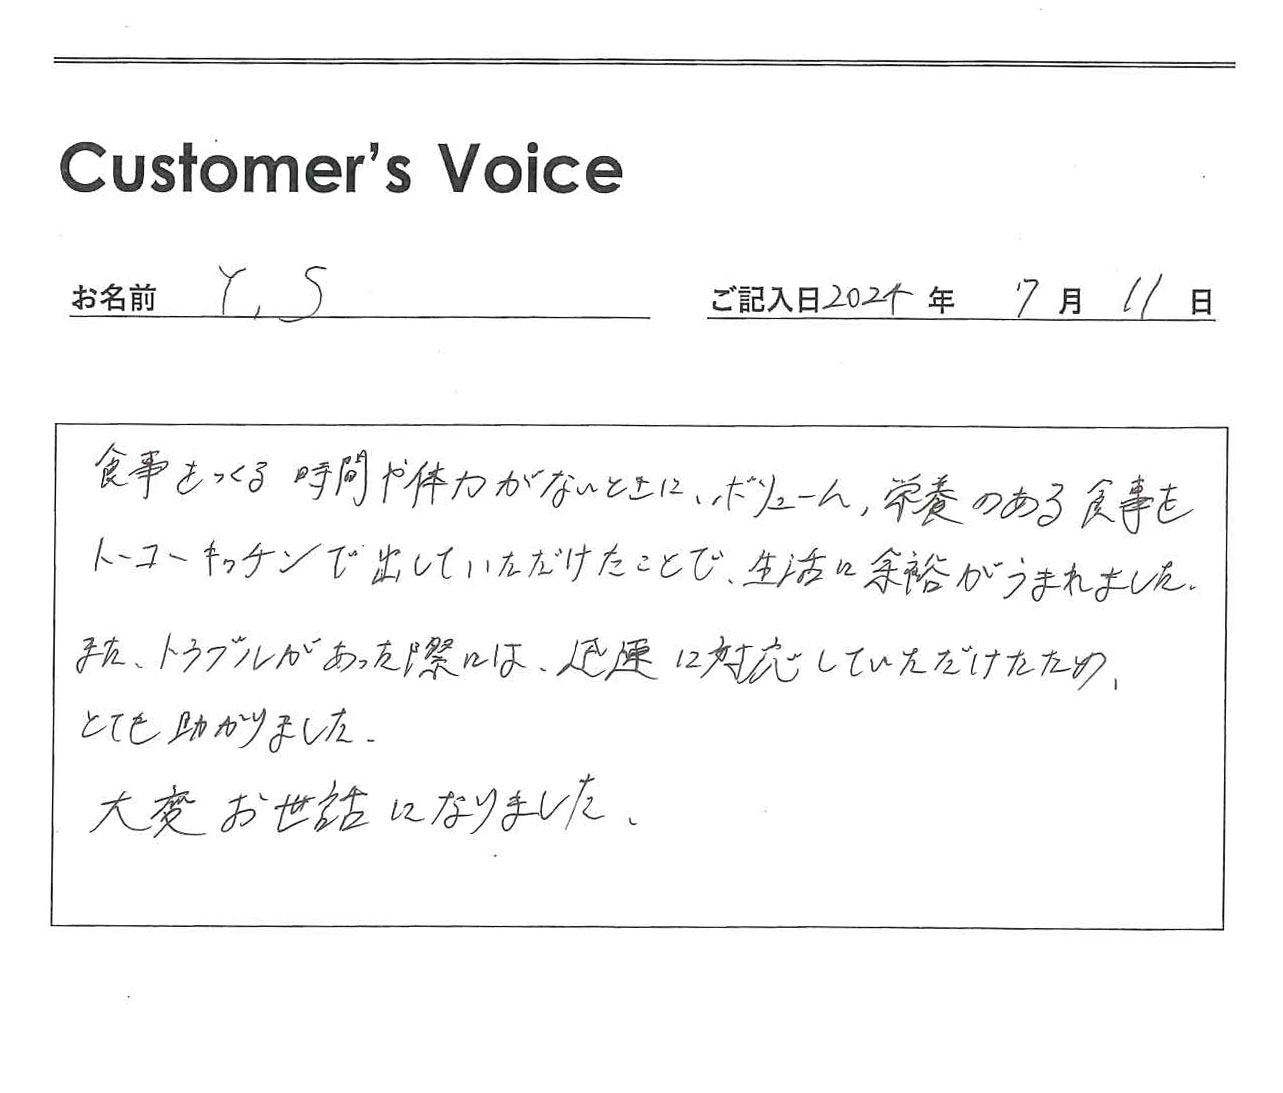 Customer's Voice
お名前 Y.S ご記入日2024年 7月 11日
食事をつくる時間や体力がないときに、ボリューム,栄養のある食事を
トーコーキッチンで出していただけたことで、生活に余裕がうまれました。
また、トラブルがあった際には、迅速に対応していただけたため、
とても助かりました。
大変お世話になりました。